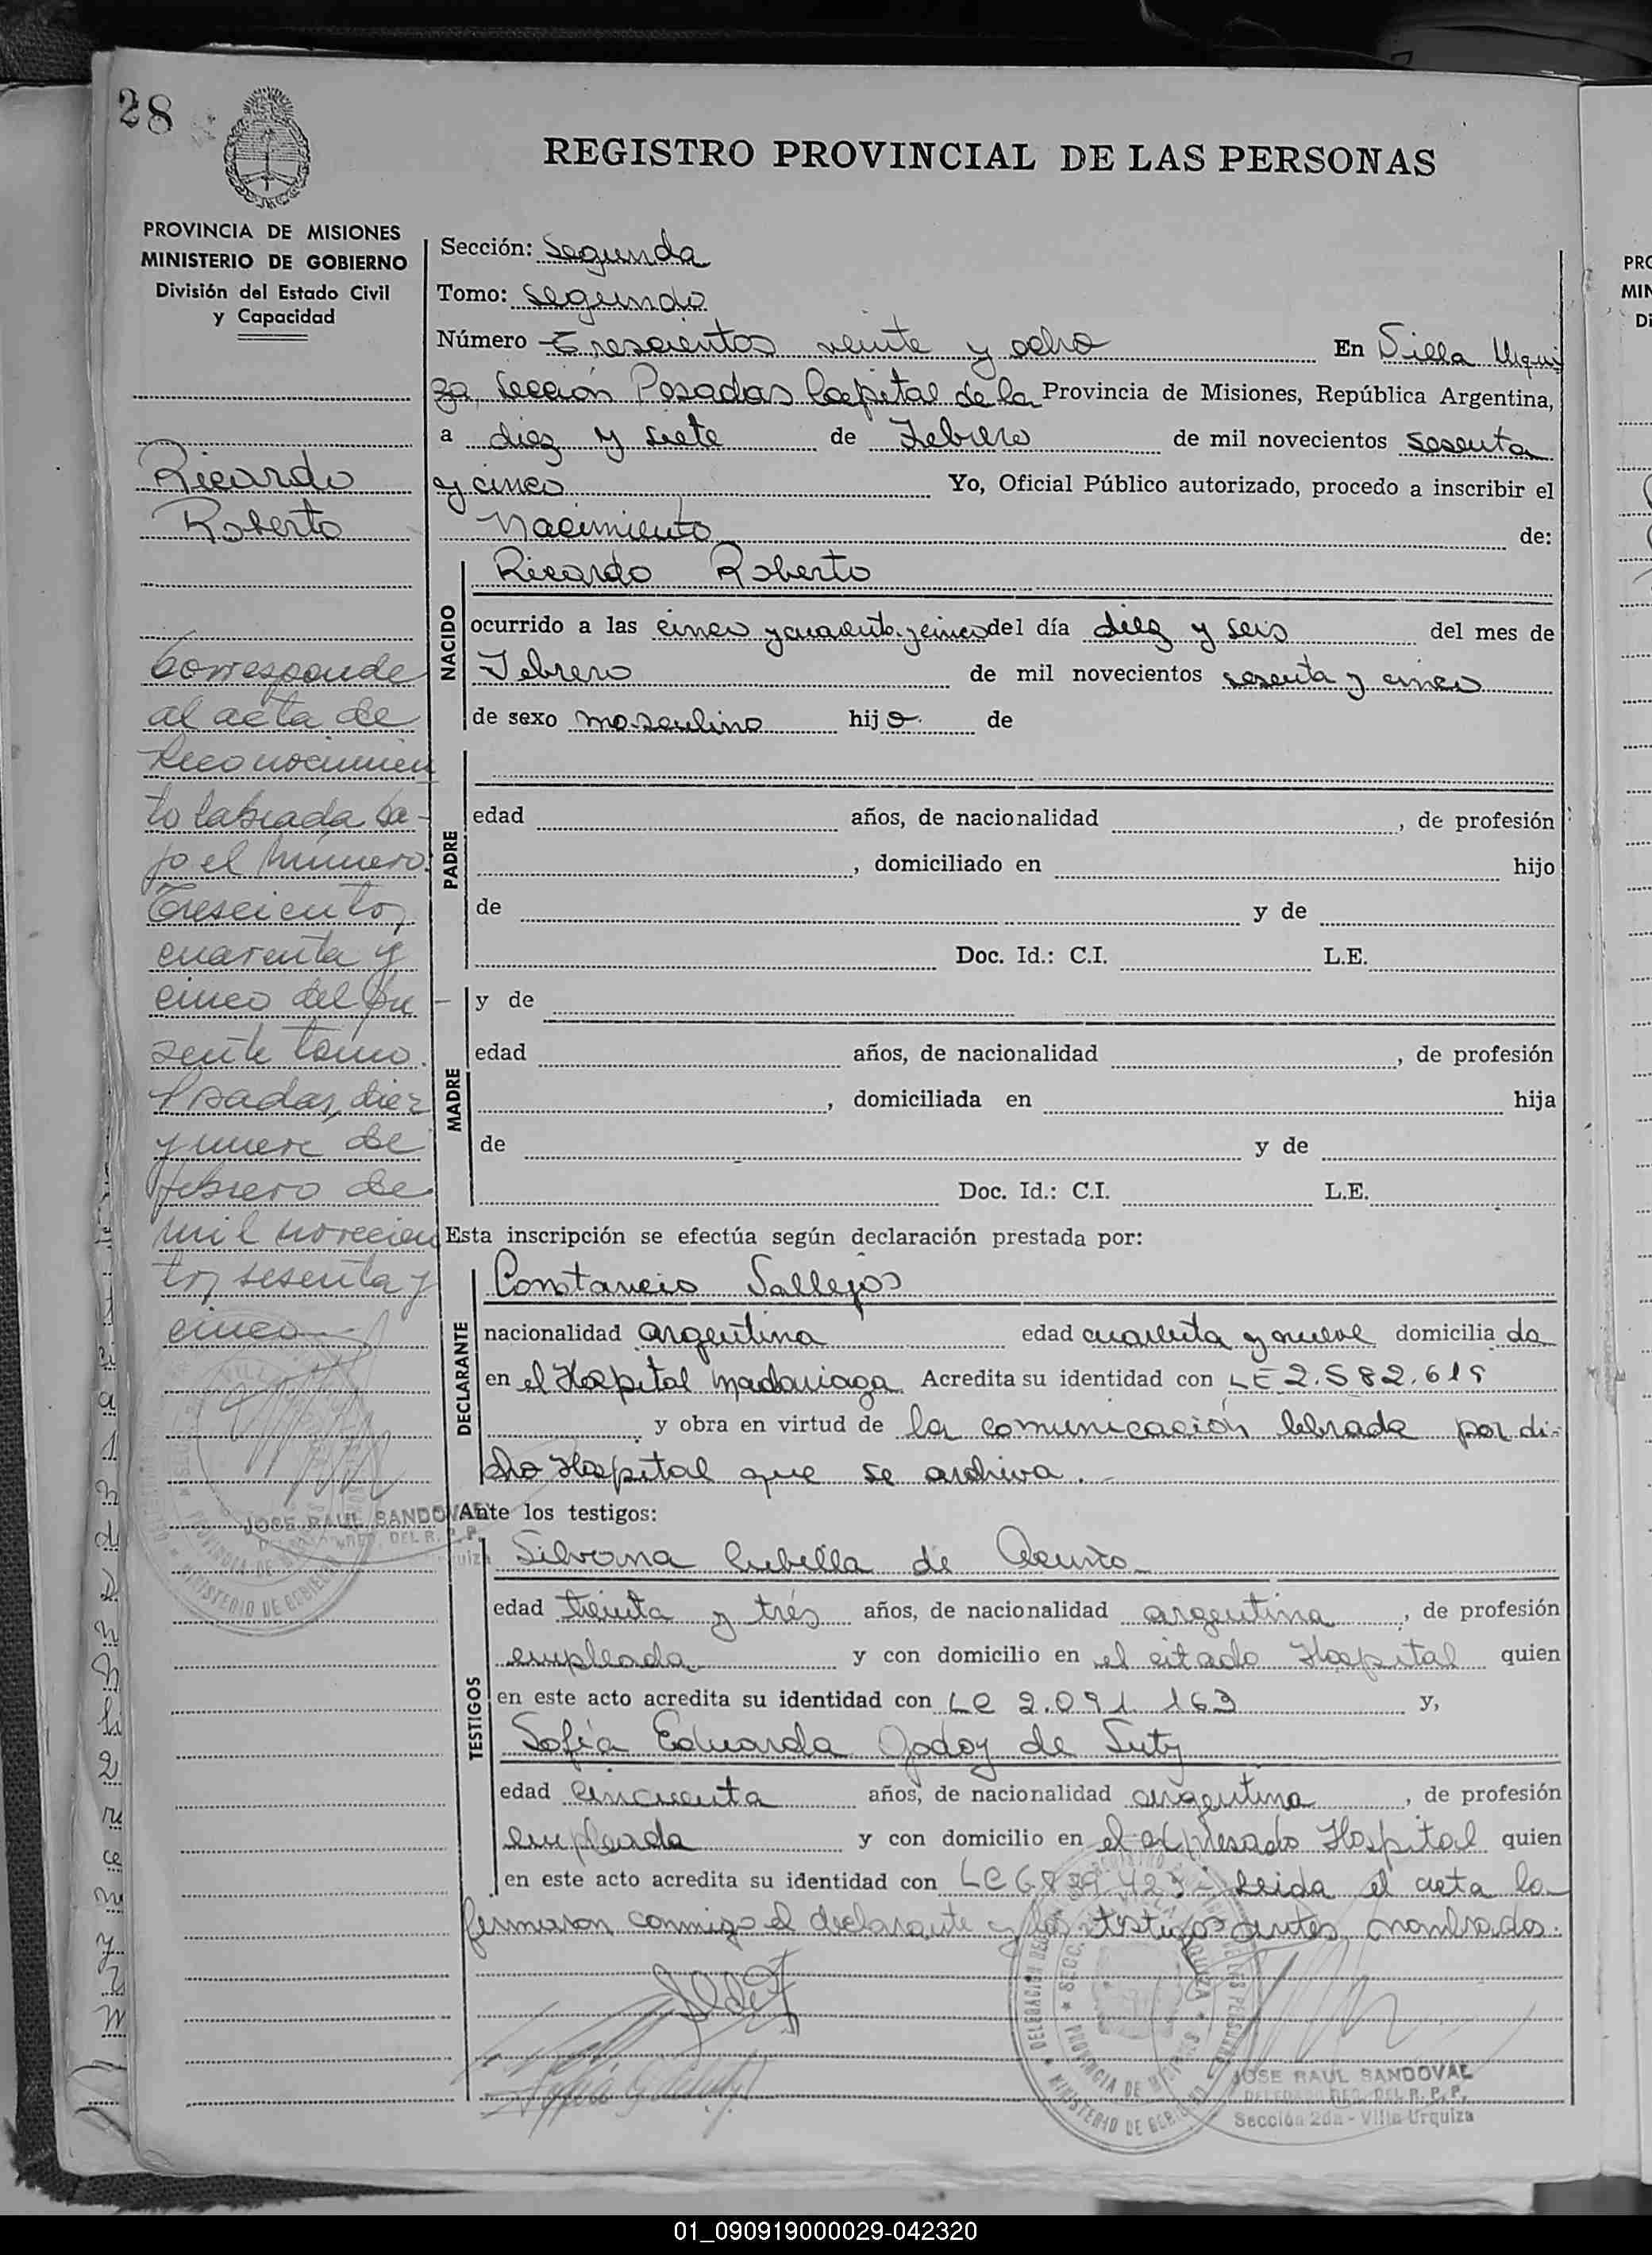 28
REGISTRO PROVINCIAL DE LAS PERSONAS
PROVINCIA DE MISIONES
MINISTERIO DE GOBIERNO
División del Estado Civil
y Capacidad
Ricardo
Roberto
Corresponde
al acta de
Reconocimien
to labrada ba-
jo el número
Trescientos
cuarenta y
cinco del pre
sente tomo.
Posadas, diez
y nueve de
febrero de
mil novecien
tos sesenta y
cinco
JOSE RAUL SANDOVAL
Sección: Segunda
Tomo: Segundo
Número Trescientos veinte y ocho En Villa Urqui
za, Sección Posadas Capital de la Provincia de Misiones, República Argentina,
a diez y siete de Febrero de mil novecientos sesenta
y cinco Yo, Oficial Público autorizado, procedo a inscribir el
Nacimiento de:
NACIDO
Ricardo Roberto
ocurrido a las cinco y cuarenta y cinco del día diez y seis del mes de
Febrero de mil novecientos sesenta y cinco
de sexo masculino hijo de
PADRE
edad años, de nacionalidad , de profesión
, domiciliado en hijo
de y de
Doc. Id.: C.I. L.E.
MADRE
y de
edad años, de nacionalidad , de profesión
, domiciliada en hija
de y de
Doc. Id.: C.I. L.E.
Esta inscripción se efectúa según declaración prestada por:
DECLARANTE
Constancio Vallejos
nacionalidad argentina edad cuarenta y nueve domicilia do
en el Hospital Madariaga Acredita su identidad con LE 2.582.619
y obra en virtud de la comunicación librada por di-
cho Hospital que se archiva.-
Ante los testigos:
TESTIGOS
Silvana Cubilla de Acuña
edad treinta y trés años, de nacionalidad argentina, de profesión
empleada y con domicilio en el citado Hospital quien
en este acto acredita su identidad con LC 2.091.163 y,
Sofía Eduarda Godoy de Suty
edad cincuenta años, de nacionalidad argentina, de profesión
empleada y con domicilio en el expresado Hospital quien
en este acto acredita su identidad con LC Leida el acta la
firmaron conmigo el declarante y los testigos antes nombrados.
JOSE RAUL SANDOVAL
Sección 2da - Villa Urquiza
01_090919000029-042320